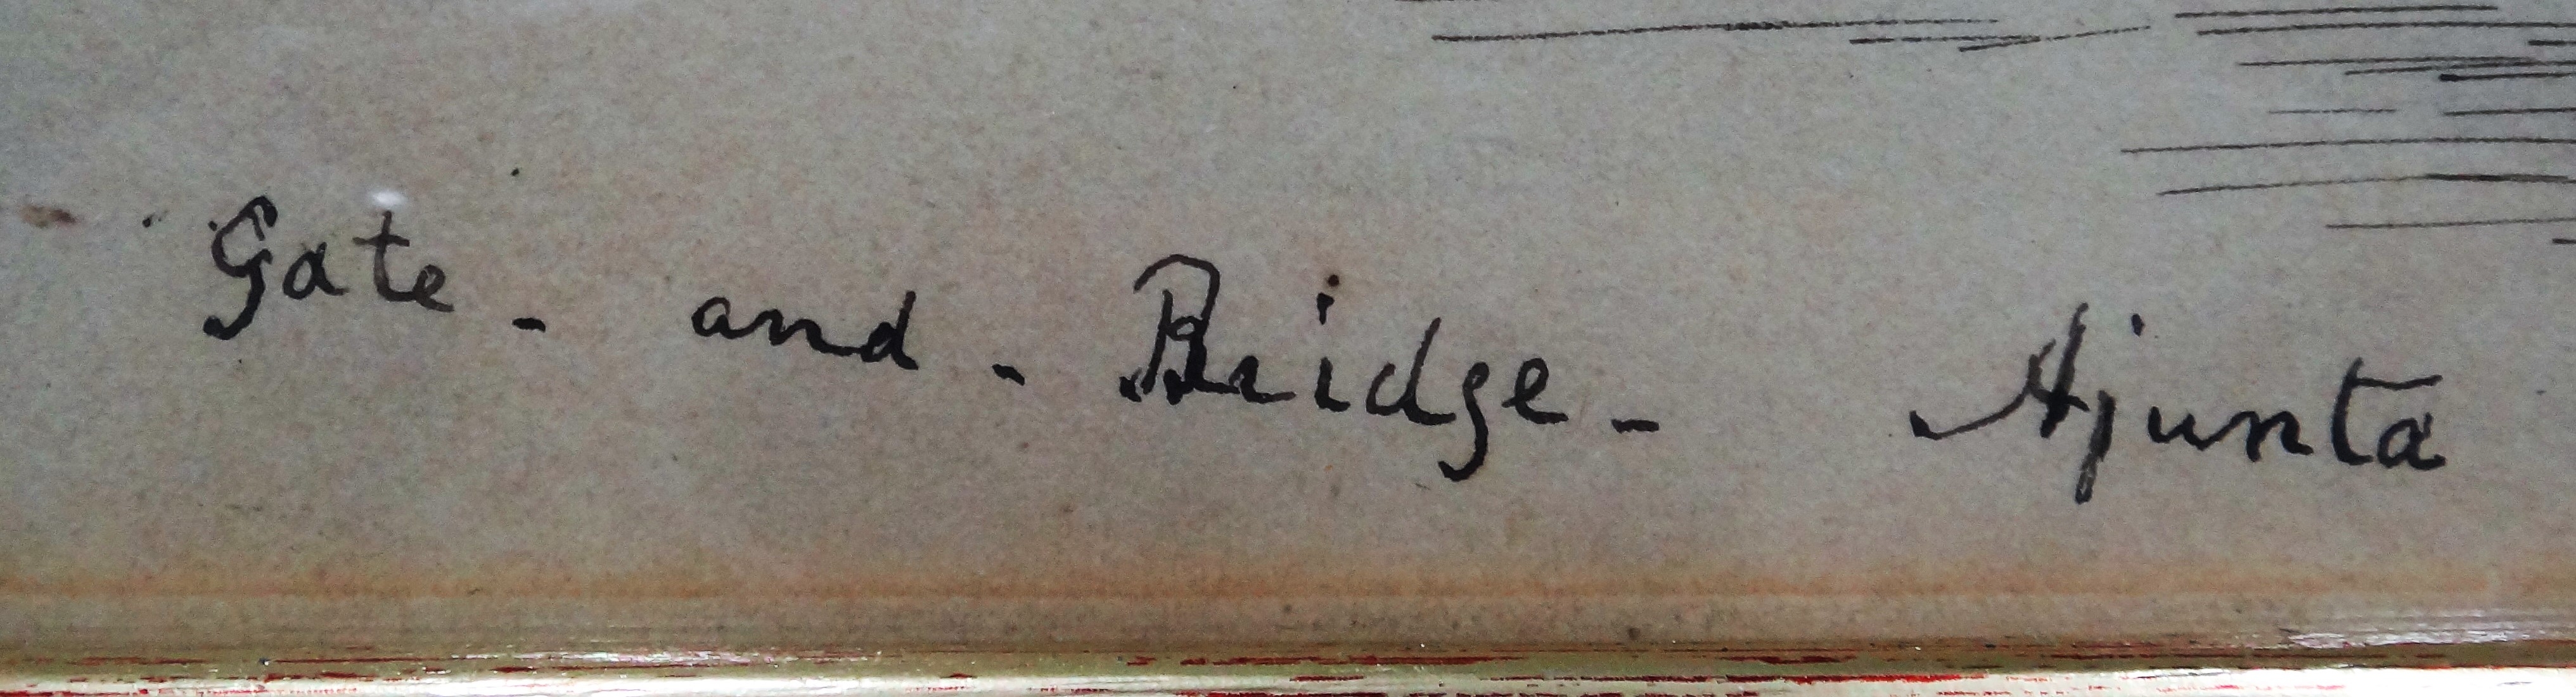 Gate - and - Bridge - Ajunta